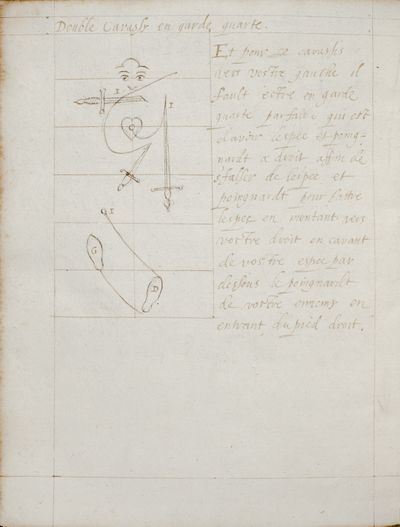 Double Carasly en garde quarte.
Et pour ce carasly
vers vostre gauche il
fault estre en garde
quarte parfaite qui est
d'avoir l'espee et poing-
nardt a droit affin de
l'espee et
poingnardt pour
l'espee en montant vers
vostre droit en
de vostre espee par
dessous le poingnardt
de vostre ennemy en
entrant du pied droit.
1
1
1
G
D